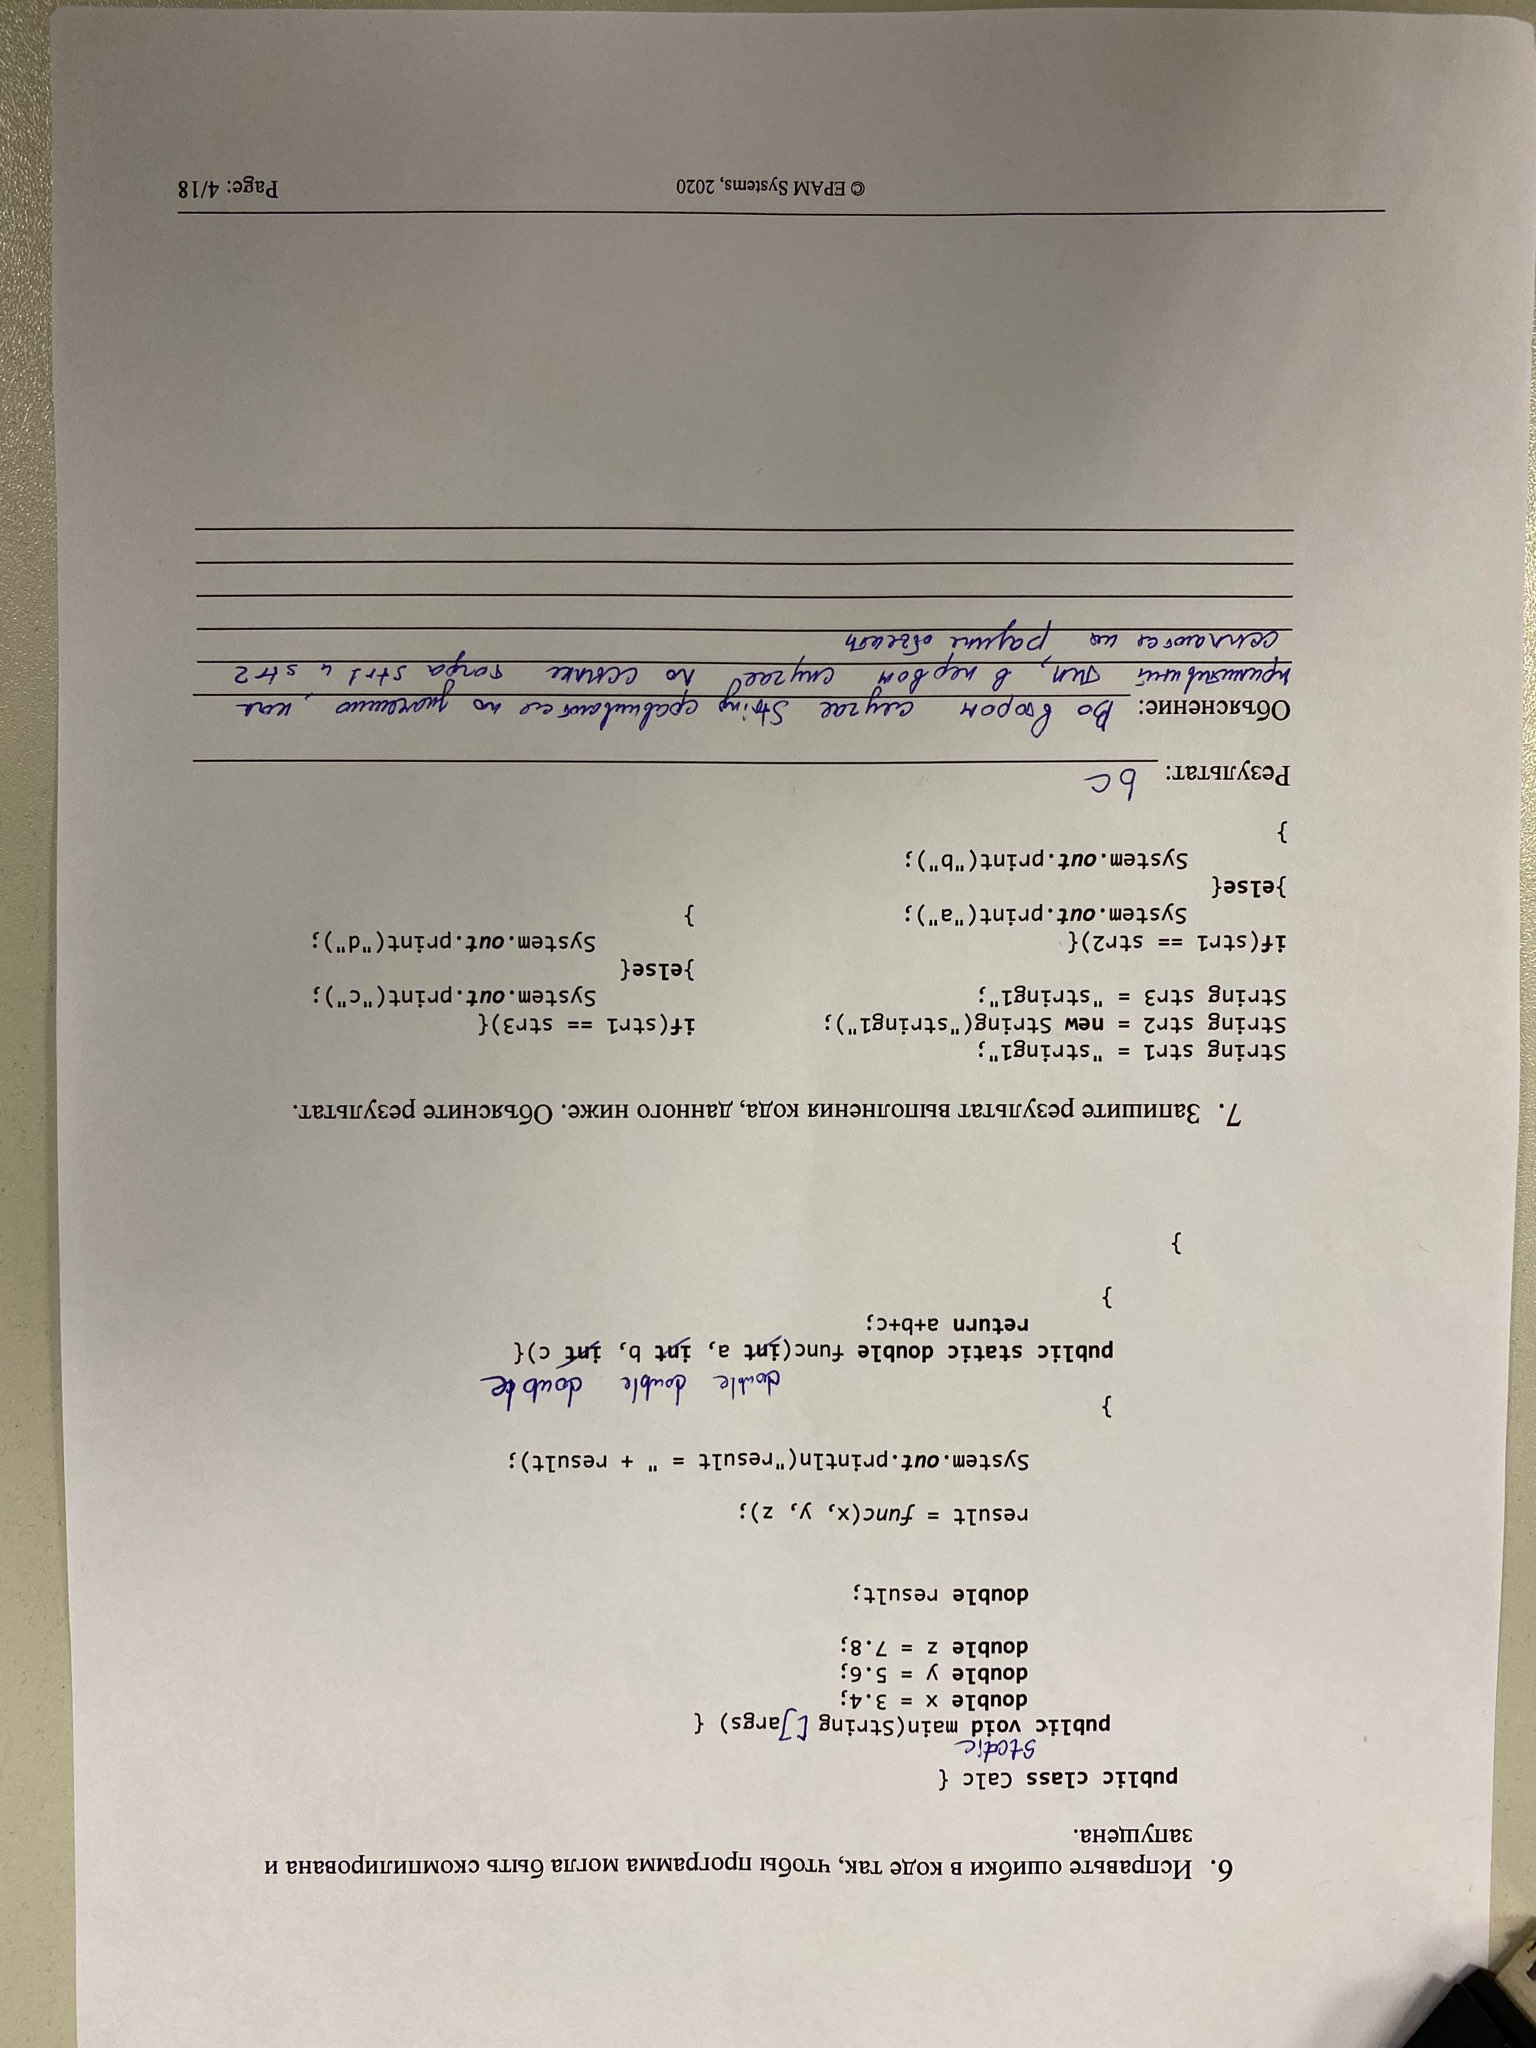 6. Исправьте ошибки в коде так, чтобы программа могла быть скомпилирована и
запущена.
public class Calc {
static
public void main(String []args) {
double x = 3.4;
double y = 5.6;
double z = 7.8;
double result;
result = func(x, y, z);
System.out.println("result = " + result);
}
double double double
public static double func(int a, int b, int c){
return a+b+c;
}
}
7. Запишите результат выполнения кода, данного ниже. Объясните результат.
String str1 = "string1";
String str2 = new String("string1");
String str3 = "string1";
if(str1 == str2){
System.out.print("a");
}else{
System.out.print("b");
}
if(str1 == str3){
System.out.print("c");
}else{
System.out.print("d");
}
Результат: bc
Объяснение: Во втором случае String сравниваются по значению, как
примитивный тип, в первом случае по ссылке тогда str1 и str2
ссылаются на разные объекты
© EPAM Systems, 2020
Page: 4/18